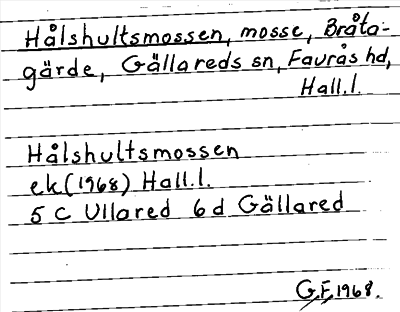 Hålshultsmossen, mosse, Bråta-
gärde, Gällareds sn, Faurås hd,
Hall.l.
Hålshultsmossen
ek(1968) Hall.l.
5 C Ullared 6 d Gällared
G.F. 1968.